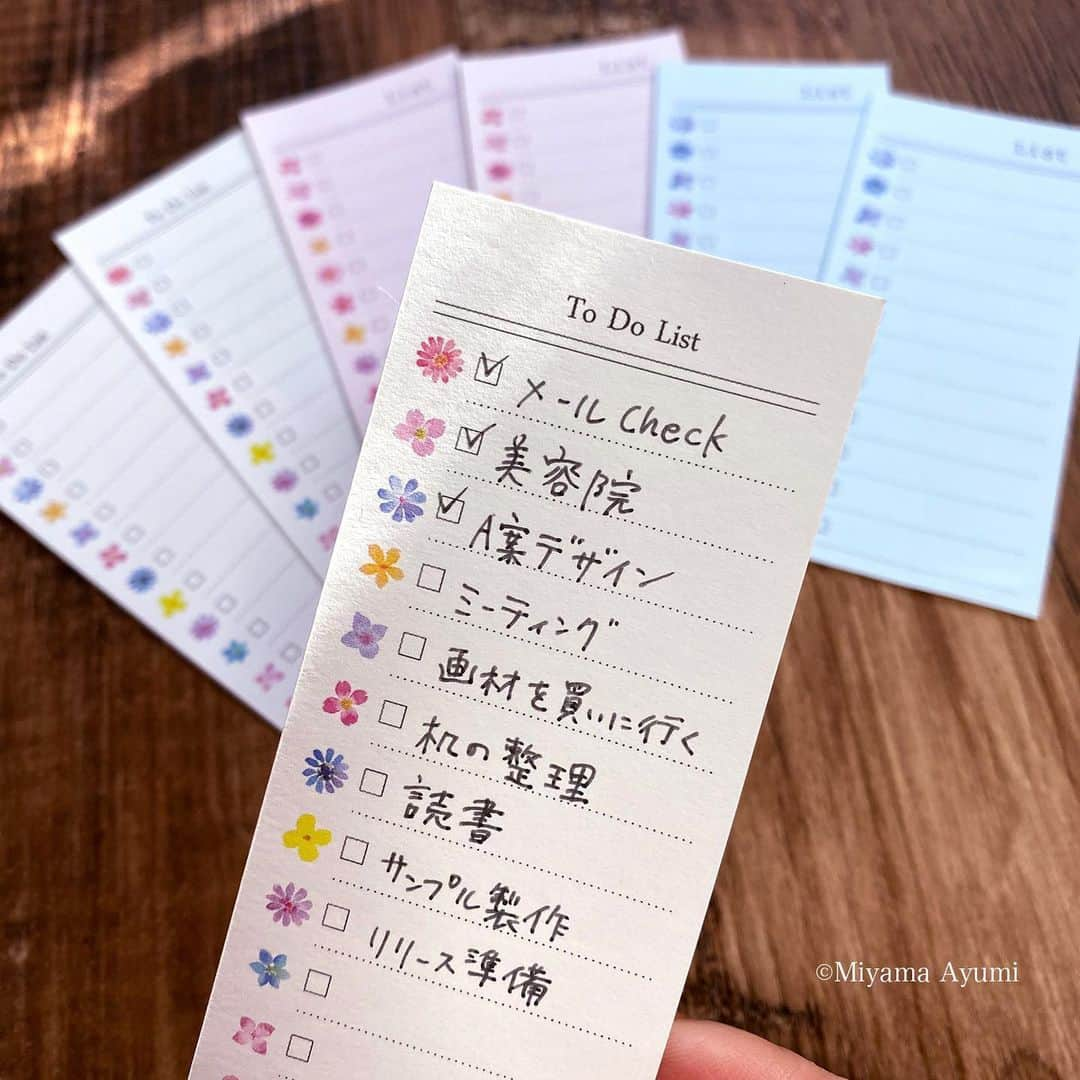 To Do List
メールCheck
美容院
A案デザイン
ミーティング
画材を買いに行く
机の整理
読書
サンプル製作
リリース準備
To Do List
List
List
List
List
©Miyama Ayumi